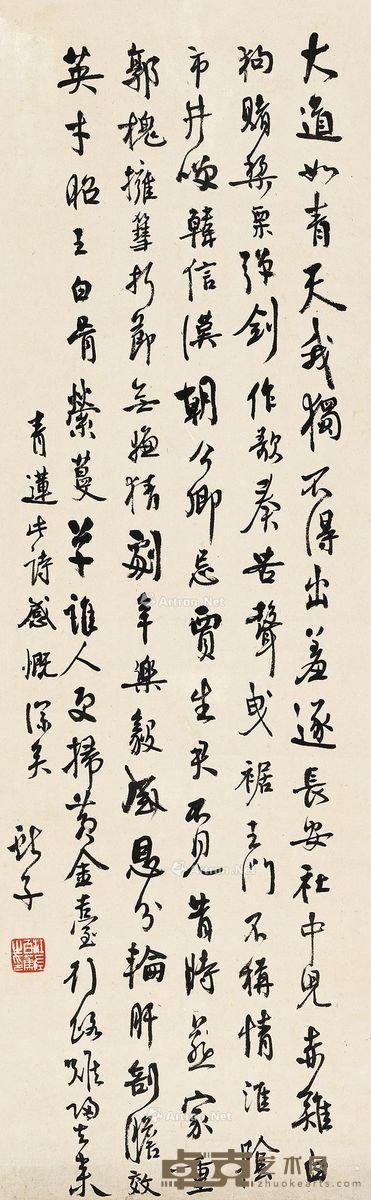 大道如青天我獨不得出羞逐長安社中兒赤雞白
狗賭梨栗彈劍作歌奏苦聲曳裾王門不稱情淮陰
市井咲韓信漢朝公卿忌賈生君不見昔時燕家重
郭槐擁彗折節無嫌猜劇辛樂毅感恩分輸肝剖膽效
英才昭王白骨縈蔓草誰人更掃黃金臺行路難歸去來
青蓮此詩感慨深矣
Artron.Net
卓克艺术网
zhuokearts.com